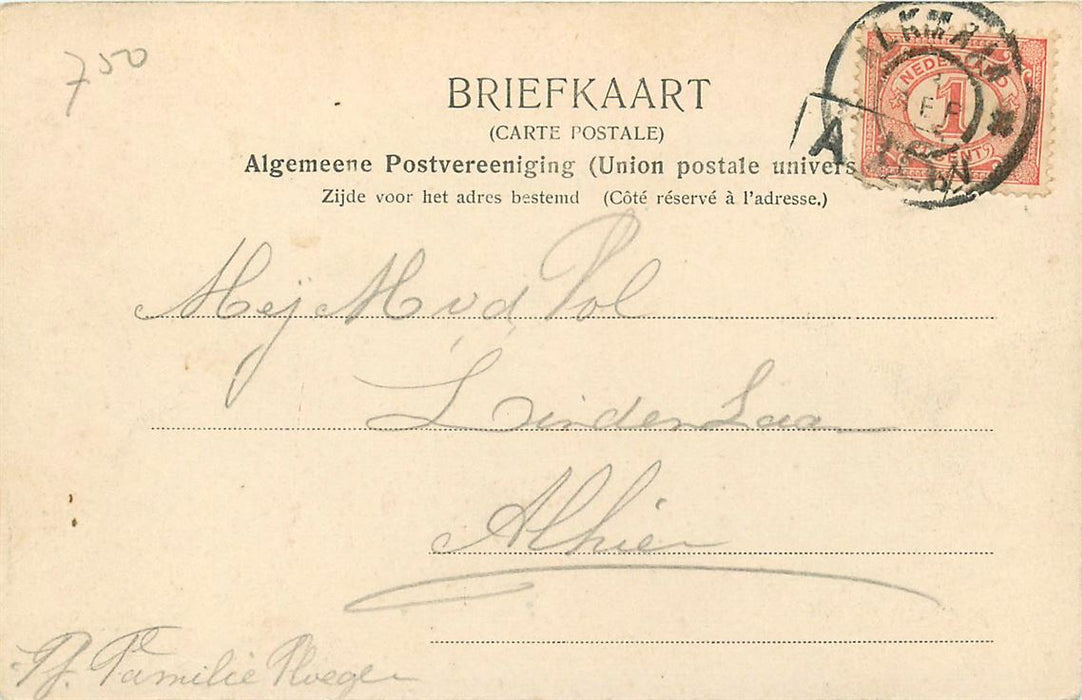 750
BRIEFKAART
(CARTE POSTALE)
Algemeene Postvereeniging (Union postale univers
Zijde voor het adres bestemd (Côté réservé à l'adresse.)
ALKMAAR
NEDERLAND
1
CENT
A
Mej M v d Pol
Linden Laan
Alhier
Familie Ploeger